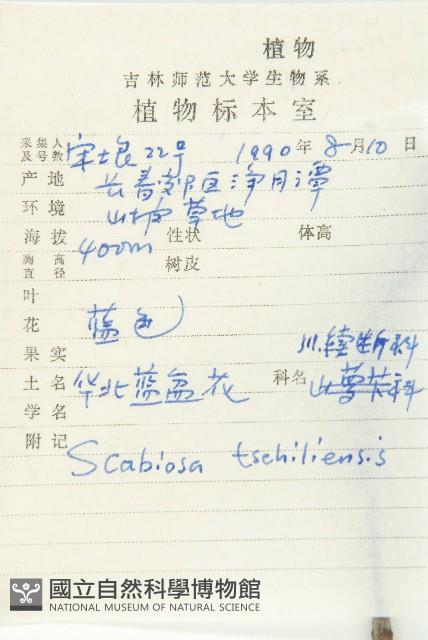 植物
吉林师范大学生物系
植物标本室
采集人及号教 宋士良 22号 1990年 8月10日
产地 长春郊区净月潭
环境 山坡草地
海拔 400m 性状 体高
胸高直径 树皮
叶
花 蓝色
果实 川续断科
土名 华北蓝盆花 科名 山萝卜科
学名
附记 Scabiosa tschiliensis
國立自然科學博物館
NATIONAL MUSEUM OF NATURAL SCIENCE